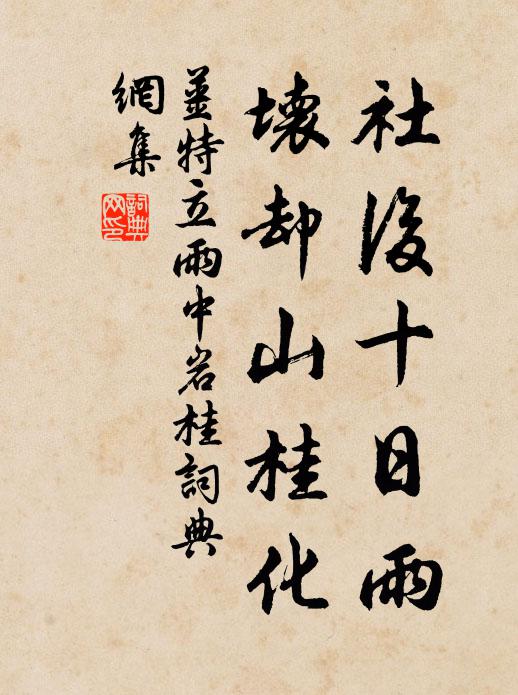 社後十日雨
壞却山桂化
姜特立雨中岩桂詞典
網集
詞典
网印